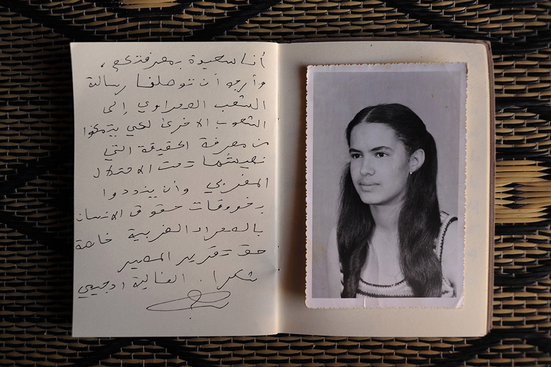 أنا سعيدة بمعرفتكم،
وأرجو أن توصلوا رسالة
الشعب الصحراوي إلى
الشعوب الأخرى لكي يتمكنوا
من معرفة الحقيقة التي
نعيشها تحت الاحتلال
المغربي وأن ينددوا
بخروقات حقوق الإنسان
بالصحراء الغربية خاصة
حق تقرير المصير
شكرا. الغالية ادجيمي